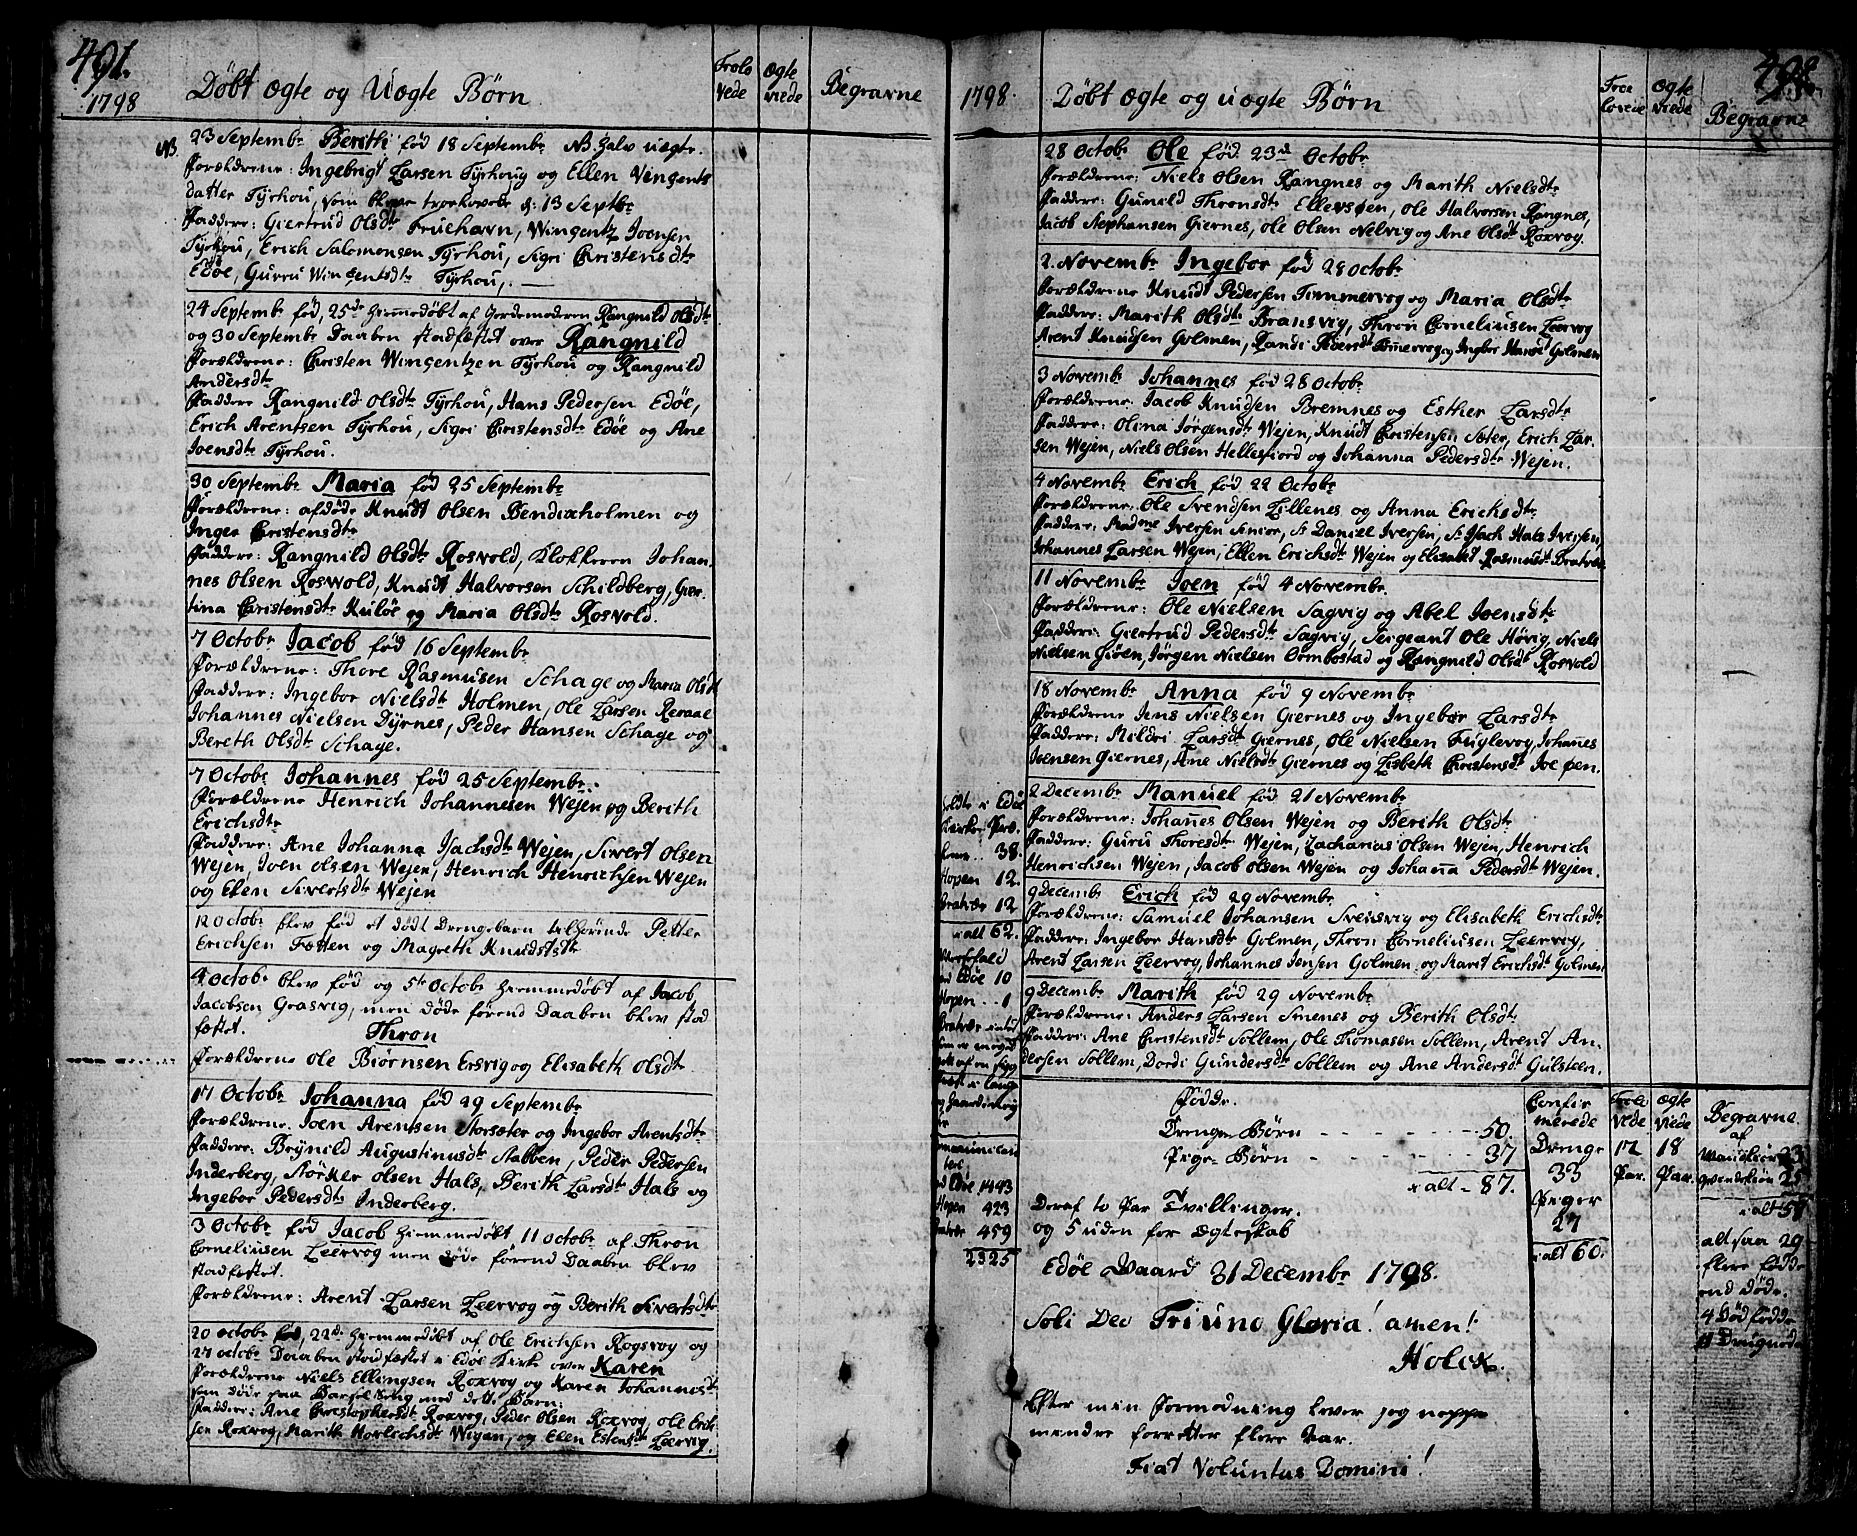 491.
1798
Døbt ægte og Uægte Børn
Trolo
vede
Ægte
viede
Begravne
NB. 23 Septembr Berith fød 18 Septembr NB. halv uægte.
Forældrene: Ingebrigt Larsen Tyrhoug og Ellen Vingents
datter Tyrhou, som bleve troelovede d: 13 Septbr
Faddere: Giertrud Olsdtr Fruehavn, Wingentz Joensen
Tyrhou, Erich Salomonsen Tyrhou, Sigri Christensdtr
Edøe, Gurru Wingentsdtr Tyrhou,
24 Septembr fød, 25de hiemmedøbt af Jordemoderen Rangnild Olsdtr
og 30 Septembr Daaben stadfæstet over Rangnild
Forældrene: Christen Wingentzen Tyrhou og Rangnild
Andersdtr
Faddere Rangnild Olsdtr Tyrhou, Hans Pedersen Edøe,
Erich Arentsen Tyrhou, Sigri Christensdtr Edøe og Ane
Joensdtr Tyrhou.
30 Septembr Maria fød 25 Septembr
Forældrene: afdøde Knudt Olsen Bendixholmen og
Inger Christensdtr
Faddere: Rangnild Olsdtr Rosvold, Klokkeren Johan-
nes Olsen Roswold, Knudt Halvorsen Schildberg, Gier-
tina Christensdtr Kuløe og Maria Olsdtr Rosvold.
7 Octobr Jacob fød 16 Septembr
Forældrene: Thore Rasmusen Schage og Maria Olsdt
Faddere: Ingebor Nielsdtr Holmen, Ole Larsen Reraae
Johannes Nielsen Dyrnes, Peder Hansen Schage og
Bereth Olsdtr Schage.
7 Octobr Johannes fød 25 Septembr.
Forældrene Henrich Johannesen Wejen og Berith
Erichsdtr
Faddere: Ane Johanna Jachsdtr Wejen, Sivert Olsen
Wejen, Joen Olsen Wejen, Henrich Henrichsen Wejen
og Elen Sivertsdtr Wejen
12 Octobr blev fød et dødt Drengebarn tilhørende Petter
Erichsen Fætten og Magreth Knudstdtr
4 Octobr blev fød og 5te Octobr hiemmedøbt af Jacob
Jacobsen Grasvig, men døde førend Daaben blev stad
fæstet.
Thron
Forældrene Ole Biørnsen Ersvig og Elisabeth Olsdtr
17 Octobr Johanna fød 29 Septembr
Forældrene: Joen Arentsen Storsæter og Ingebor Arentsdtr
Faddere: Brynild Augustinusdtr Stabben, Peder Pedersen
Inderberg, Størker Olsen Hals, Berith Larsdtr Hals og
Ingebor Pedersdtr Inderberg.
3 Octobr fød Jacob hiemmedøbt 11 octobr af Thron
Corneliusen Leervog men døde førend Daaben blev
stadfæstet.
Forældrene: Arent Larsen Leervog og Berith Sivertsdtr
20 octobr fød, 22de hiemmedøbt af Ole Erichsen Rogsvog og
27 octobr Daaben stadfæstet i Edøe Kirke over Karen
Forældrene Niels Ellingsen Roxvog og Karen Johannesdt
som døde paa Barsel Seng med dette Barn:
Faddere: Ane Christophersdtr Roxvog, Peder Olsen Roxvog, Ole Erich
sen Roxvog, Marith Horlichsdtr Wejen, og Elen Estensdtr Leervog.
1798.
Døbt ægte og uægte Børn
Troe
lovede
Ægte
viede
Begravne
28 Octobr Ole fød 23de Octobr
Forældrene: Niels Olsen Rangnes og Marith Nielsdtr
Faddere: Gunild Thronsdtr Ellevsøen, Ole Halvorsen Rangnes,
Jacob Stephansen Giernes, Ole Olsen Nelvig og Ane Olsdtr Roxvog.
2. Novembr Ingebor fød 28 Octobr
Forældrene Knudt Pedersen Tømmervog og Maria Olsdtr
Faddere: Marith Olsdtr Bransvig, Thron Corneliusen Leervog
Arent Knudsen Golmen, Randi Pedersdtr Tømmervog og Ingbor Hansdt Golmen
3 Novembr Johannes fød 28 Octobr
Forældrene: Jacob Knudsen Bremnes og Esther Larsdtr
Faddere: Olina Jørgensdtr Wejen, Knudt Christensen Sæter, Erich Lar-
sen Wejen, Niels Olsen Hellesfiord og Johanna Pedersdtr Wejen.
4 Novembr Erich fød 22 Octobr
Forældrene: Ole Svendsen Lillenes og Anna Erichsdtr
Faddere: Madme Iversen Senior, Sr Daniel Iversen, Sr Isach Hals Iversen,
Johannes Larsen Wejen, Ellen Erichsdtr Wejen og Elisabt Rasmusdtr Bratvær
11 Novembr Joen fød 4 Novembr.
Forældrene: Ole Nielsen Sagvig og Abel Joensdtr
Faddere: Giertrud Pedersdtr Sagvig, Sergeant Ole Høvig, Niels
Nielsen Giøen, Jørgen Nielsen Ormbostad og Rangnild Olsdt Rosvold
18 Novembr Anna fød 9 Novembr
Forældrene Jens Nielsen Giernes og Ingebor Larsdtr
Faddere: Mildri Larsdtr Giernes, Ole Nielsen Fuglevog, Johanes
Joensen Giernes, Ane Nielsdtr Giernes og Lisbeth Christensdtr Joe øen.
2 Decembr Manuel fød 21 Novembr
Forældrene: Johanes Olsen Wejen og Berith Olsdtr
Faddere: Guru Thoresdtr Wejen, Zacharias Olsen Wejen, Henrich
Henrichsen Wejen, Jacob Olsen Wejen og Johana Pedersdtr Wejen.
9 Decembr Erich fød 29 Novembr
Forældrene: Samuel Johansen Svensvig og Elisabeth Erichsdtr
Faddere: Ingebor Hansdtr Golmen, Thron Corneliusen Leervog,
Arent Larsen Leervog, Johannes Jensen Golmen og Marit Erichsdtr Golmen
9 Decembr Marith fød 29 Novembr
Forældrene: Anders Larsen Smenes og Berith Olsdtr
Faddere: Ane Christensdtr Sollem, Ole Thomasen Sollem, Arent An-
dersen Sollem, Dordi Gundersdtr Sollem og Ane Andersdtr Gulsteen.
Holdte i Edøe
Kirke Præ
38.
Hopen 12.
Bratvær 12
i alt 62.
Edøe 10
Hopen .. 1
Edøe 1443
Hopen 423
Bratvær 459
2325
Fødde.
Drenge Børn - - - - - - 50.
Pige Børn - - - - - - 37
i alt - 87.
Deraf to Par Tvillinger.
og 5 uden for Ægteskab
Confir
merede
Drenge
33
Piger
27
i alt 60.
Trolo
vede
17
Par.
Ægte
viede
18
Par.
Begravne
af
Mandkiøn 33
Qvindekiøn 25
i alt 58
altsaa 29
flere fødde
end døde.
4 Dødfødde
Edøe Gaard 31 Decembr 1798.
Soli Deo Triuno Gloria! amen!
Holck.
Efter min Formodning lever jeg neppe
mindre forretter flere Aar.
Fiat Voluntas Domini!